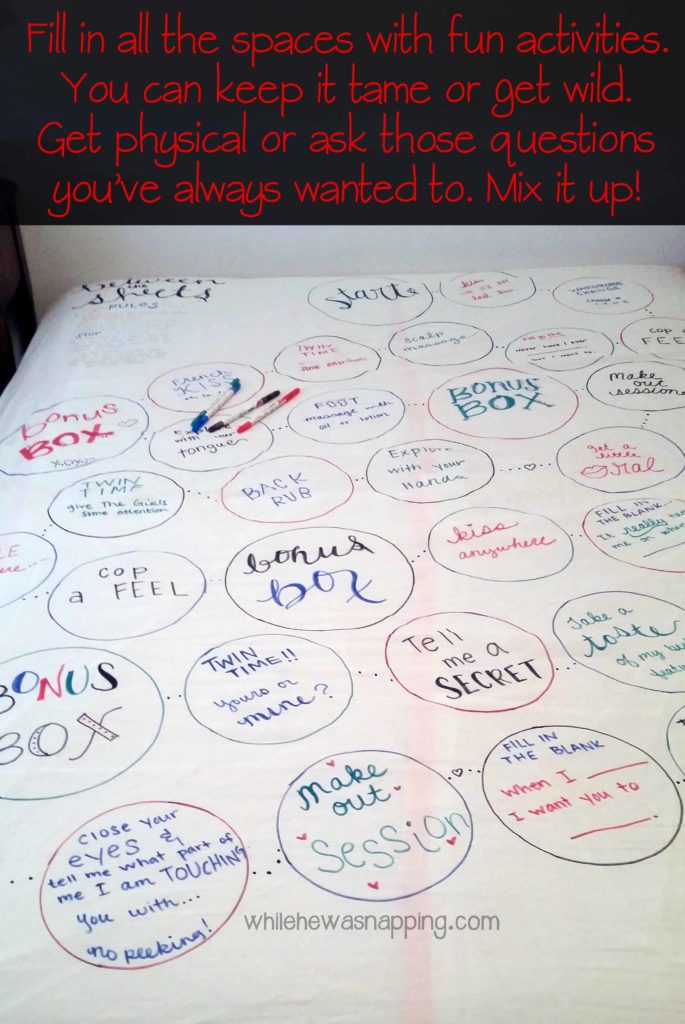 Fill in all the spaces with fun activities.
You can keep it tame or get wild.
Get physical or ask those questions
you've always wanted to. Mix it up!
between
the
sheets
RULES
start
kiss
last kiss
WARDROBE
CHANGE
TWIN
TIME
some attention
scalp
massage
Fill in the
never have I ever
but I want to.
COP a
FEEL
French
KISS
FOOT
massage with
oil or lotion
BONUS
BOX
Make
out
session
BONUS
BOX
Explore
with your
tongue
TWIN
TIME
give The Girls
some attention
BACK
RUB
Explore
with your
Hands
get a
little
ORAL
FILL IN
THE BLANK
It really
me on when
a COP
FEEL
bonus
box
kiss
anywhere
BONUS
BOX
TWIN
TIME!!
yours or
mine?
Tell
me a
SECRET
Take a
taste
of my best
Make
out
Session
FILL IN
THE BLANK
when I ______
I want you to
______.
Close your
eyes &
tell me what part of
me I am TOUCHING
you with...
no peeking!
whilehewasnapping.com